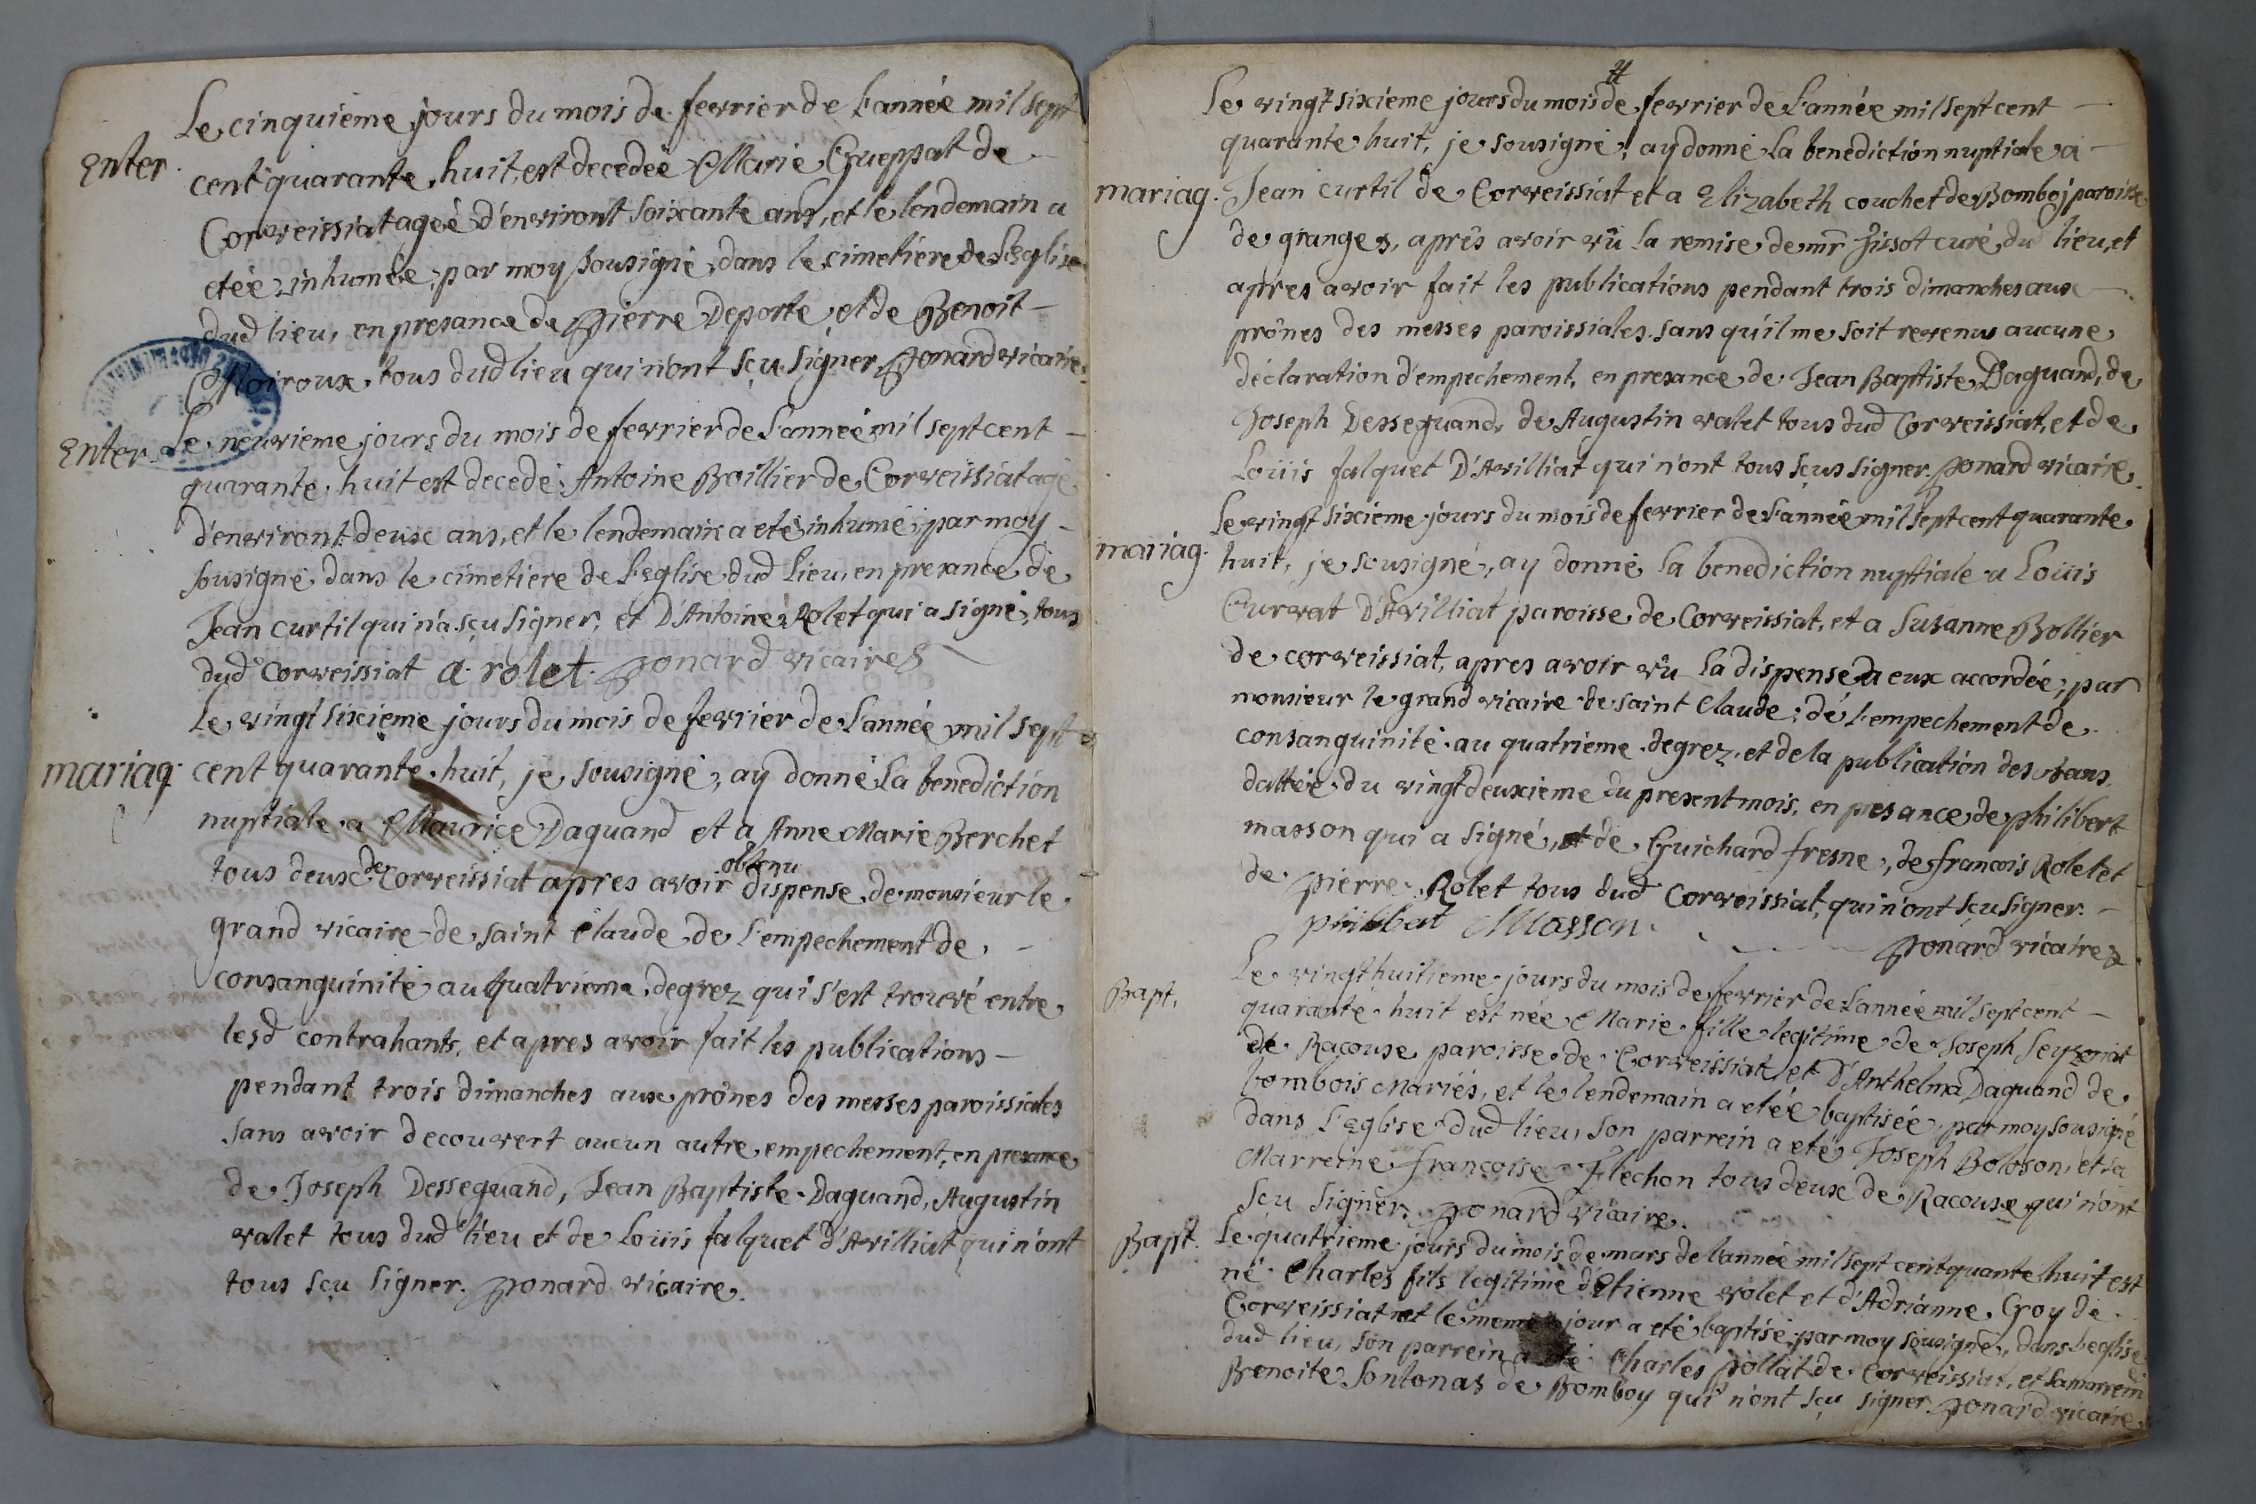 Le cinquieme jours du mois de fevrier de l'année mil sept
Enter. cent quarante huit, est decedée Marie Gueppat de
Corveissiat ageé d'environt soixante ans, et le lendemain a
etéé inhumée, par moy sousigné, dans le cimetiere de l'Eglise
dud lieu, en presance de Pierre Deporte, et de Benoit
Moiroux, tous dud lieu qui n'ont sçu signer. Ponard vicaire.
Enter. Le neuvieme jours du mois de fevrier de l'année mil sept cent
quarante huit est decedé Antoine Boillier de Corveissiat agé
d'environt deux ans, et le lendemain a eté inhumé, par moy
sousigné dans le cimetiere de l'Eglise dud lieu, en presance de
Jean Curtil qui n'a sçu signer, et D'Antoine Rolet qui a signé, tous
dud Corveissiat a. rolet. Ponard vicaire
Le vingt sixieme jours du mois de fevrier de l'année mil sept
mariag. cent quarante huit, je sousigné, ay donné la benediction
nuptiale a Maurice Daguand et a Anne Marie Berchet
obtenu
tous deux de Corveissiat apres avoir dispense de monsieur le
grand vicaire de saint Claude de l'empechement de
consanguinité au quatrieme degrez qui s'est trouvé entre
lesd contrahants, et apres avoir fait les publications
pendant trois dimanches aux prônes des messes paroissiales
sans avoir decouvert aucun autre empechement, en presance
de Joseph Dessequand, Jean Baptiste Daguand, Augustin
valet tous dud lieu et de Loüis falquet d'Avilliat qui n'ont
tous sçu signer. Ponard vicaire.
Le vingt sixieme jours du mois de fevrier de l'année mil sept cent
quarante huit, je sousigné, ay donné la benediction nuptiale a
mariag. Jean Curtil de Corveissiat et a Elizabeth couchet de Bomboj paroisse
de granges, aprês avoir vû la remise de mr curé du lieu, et
apres avoir fait les publications pendant trois dimanches aux
prônes des messes paroissiales sans qu'il me soit revenus aucune
déclaration d'empechement, en presance de Jean Baptiste Daguand, de
Joseph Dessequand, de Augustin valet tous dud Corveissiat, et de
Loüis falquet D'Avilliat qui n'ont tous sçus signer. Ponard vicaire.
Le vingt sixieme jours du mois de fevrier de l'année mil sept cent quarante
mariag. huit, je sousigné, ay donné la benediction nuptiale a Loüis
Curvat D'Avilliat paroisse de Corveissiat, et a Susanne Bollier
de corveissiat, apres avoir vû la dispense a eux accordée, par
monsieur le grand vicaire de saint Claude, dé l'empechement de
consanguinité au quatrieme degrez, et de la publication des bans
dattée du vingt deuxieme du present mois, en presance de philibert
masson qui a signé, et de Guichard fresne, de francois Rolet et
de pierre Rolet tous dud Corveissiat, qui n'ont sçu signer.
philibat Masson.
Ponard vicaire
Le vingt huitieme jours du mois de fevrier de l'année mil sept cent
Bapt. quarante huit est née Marie fille legitime de Joseph Seyzeriat
de Racouse paroisse de Corveissiat, et D'Anthelma Daguand de
bombois Mariés, et le lendemain a etéé baptisée, par moy sousigné
dans l'Eglise dud lieu, son parrein a eté Joseph Boloson, et sa
Marreine Françoise Flechon tous deux de Racouse qui n'ont
sçu signer. Ponard vicaire.
Bapt. Le quatrieme jours du mois de mars de l'année mil sept cent quante huit est
né Charles fils legitime d'Etienne volet et d'Adrianne Goy de
Corveissiat et le meme jour a eté baptisé, par moy sousigné, dans l'eglise
dud lieu, son parrein a eté Charles Pollat de Corveissiat, et sa marrein
Benoite Sontonas de Bomboy qui n'ont sçu signer. Ponard vicaire.